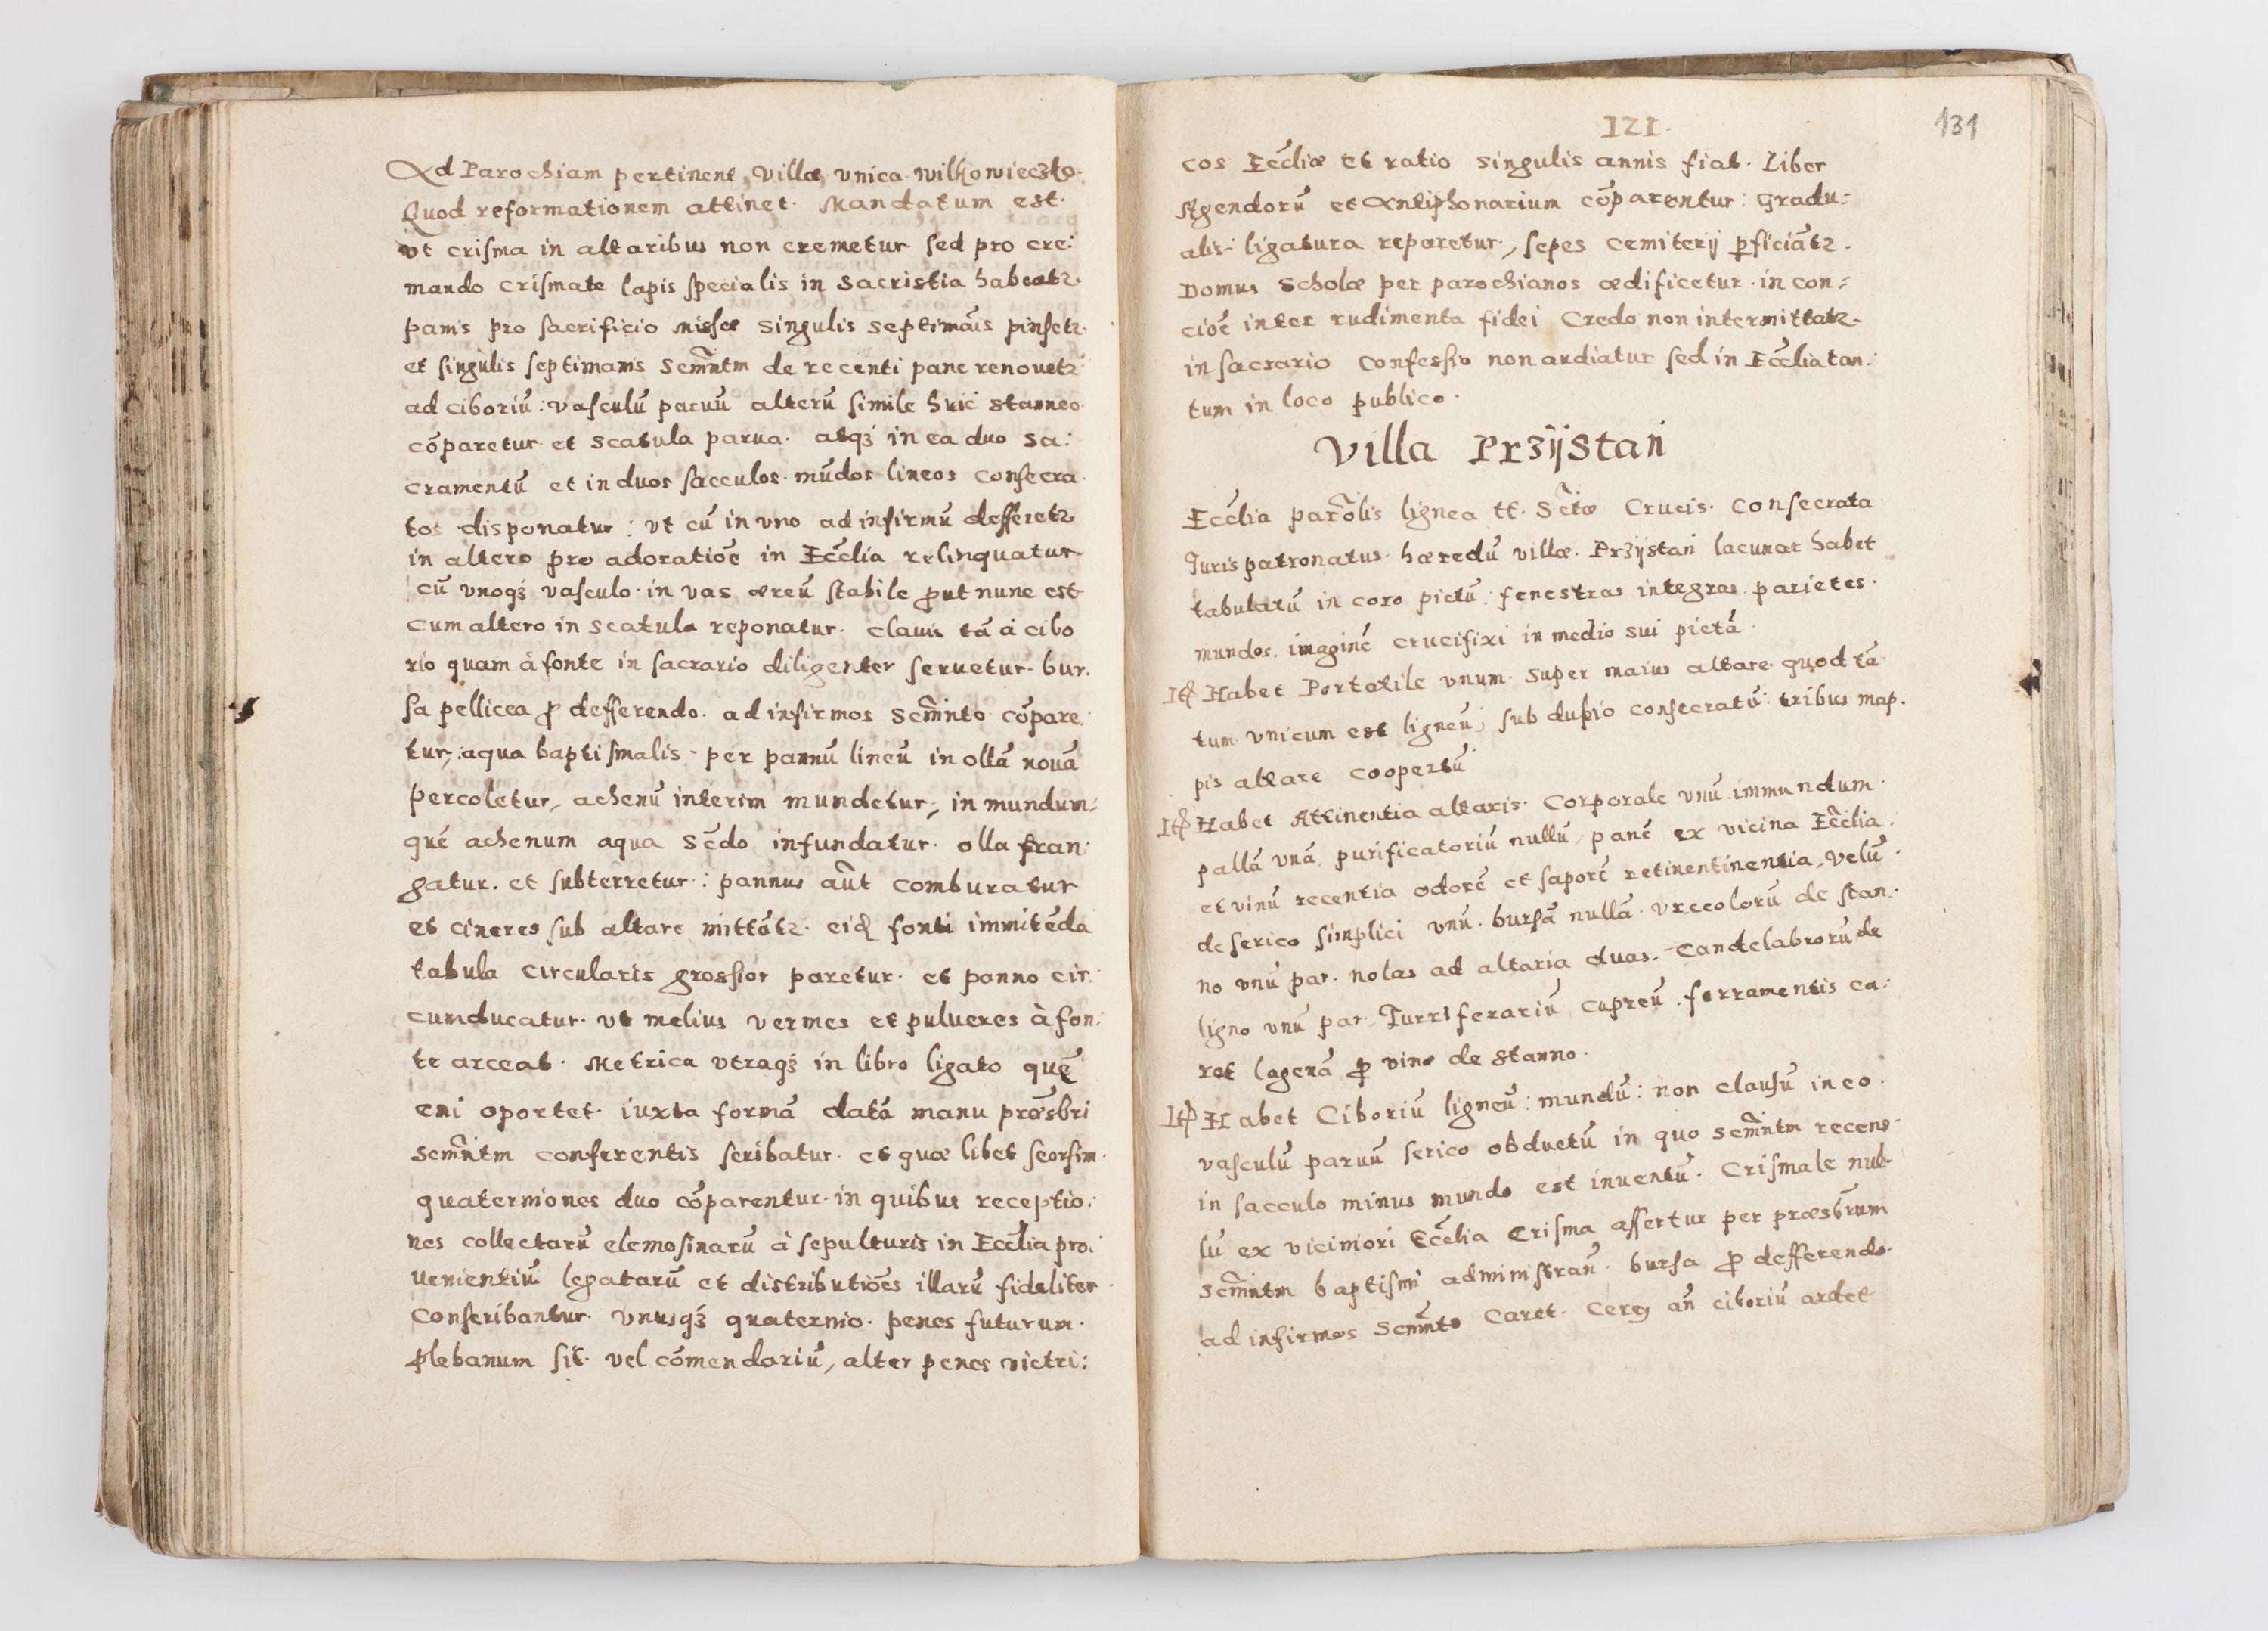 Ad Parochiam pertinent, Villæ, vnica Wilkowieczko.
Quod reformationem attinet. Mandatum est.
vt crisma in altaribus non cremetur sed pro cre:
mando crismate lapis specialis in Sacristia habeatꝛ.
panis pro sacrificio missæ singulis septimāis pinsetꝛ.
et singulis septimanis Scm̃ntm de recenti pane renouetꝛ
ad ciboriū: vasculū paruū alterū simile huic stanneo
cōparetur et scatula parua. atqꝫ in ea duo sa:
cramentū et in duos sacculos mūdos lineos consecra
tos disponatur: vt cū in vno ad infirmū defferetꝛ
in altero pro adoratiōe in Ecc̃lia relinquatur
cū vnoqꝫ vasculo in vas æreū stabile ꝓut nunc est
cum altero in scatula reponatur. clauis tā à cibo
rio quam à fonte in sacrario diligenter seruetur. bur.
sa pellicea ꝓ defferendo ad infirmos Scm̃nto cōpare.
tur, aqua baptismalis per pannū lineū in ollā nouā
percoletur, achenū interim mundetur, in mundum=
qué achenum aqua Sc̄do infundatur. olla fran:
gatur. et subterretur: pannus aūt comburatur
et cineres sub altare mittātꝛ. eidꝫ fonti immitēda
tabula circularis grossior paretur. et panno cir:
cumducatur. vt melius vermes et pulueres à fon:
te arceat. Metrica vtraqꝫ in libro ligato quē
emi oportet iuxta formā datā manu præsbri
Scm̃ntm conferentis scribatur. et quæ libet seorsim.
quaterniones duo cōparentur. in quibus receptio:
nes collectarū elemosinarū à sepulturis in Ecc̃lia pro:
uenientiū legatarū et distributiōes illarū fideliter
conscribantur. vnusqꝫ quaternio. penes futurum.
plebanum sit. vel cōmendariū, alter penes vietri:
121.
131
cos Ecc̃liæ et ratio singulis annis fiat. Liber
Agendorū et Antiphonarium cōparentur: Gradu:
alis ligatura reparetur, sepes cemiterij ꝑficiātꝛ.
Domus scholæ per parochianos ædificetur. in con=
ciōe inter rudimenta fidei Credo non intermittatꝛ.
in sacrario confessio non audiatur sed in Ecc̃lia tan:
tum in loco publico.
Villa Przÿstań
Ecc̃lia parõlis lignea tt. Sc̃tæ Crucis. consecrata
Juris patronatus hæredū villæ. Przÿstań lacunar habet
tabulatū in coro pictū: fenestras integras. parietes.
mundos. imaginē crucifixi in medio sui pictā.
Itꝫ Habet Portatile vnum. super maius altare. quod tā
tum vnicum est ligneū, sub dubio consecratū: tribus map.
pis altare coopertū
Itꝫ Habet Attinentia altaris. Corporale vnū immundum.
pallā vnā, purificatoriū nullū, panē ex vicina Ecc̃lia.
et vinū recentia odorē et saporē retinentinentia, velū
de serico simplici vnū. bursā nullā. vrceolorū de stan:
no vnū par. nolas ad altaria duas. Candelabrorū de
ligno vnū par. Turriferariū cupreū. ferramentis ca:
ret lagenā ꝓ vino de stanno.
Itꝫ Habet Ciboriū ligneū: mundū: non clausū in eo.
vasculū paruū serico obductū in quo scm̃ntm recens
in sacculo minus mundo est inuentū. Crismale nul-
lū ex viciniori Ecc̃lia Crisma affertur per præsb̃rum
Scm̃ntm baptismi administran̄. bursa ꝓ defferendo.
ad infirmos Scm̃nto caret. Cereꝰ an̄ ciboriū ardet